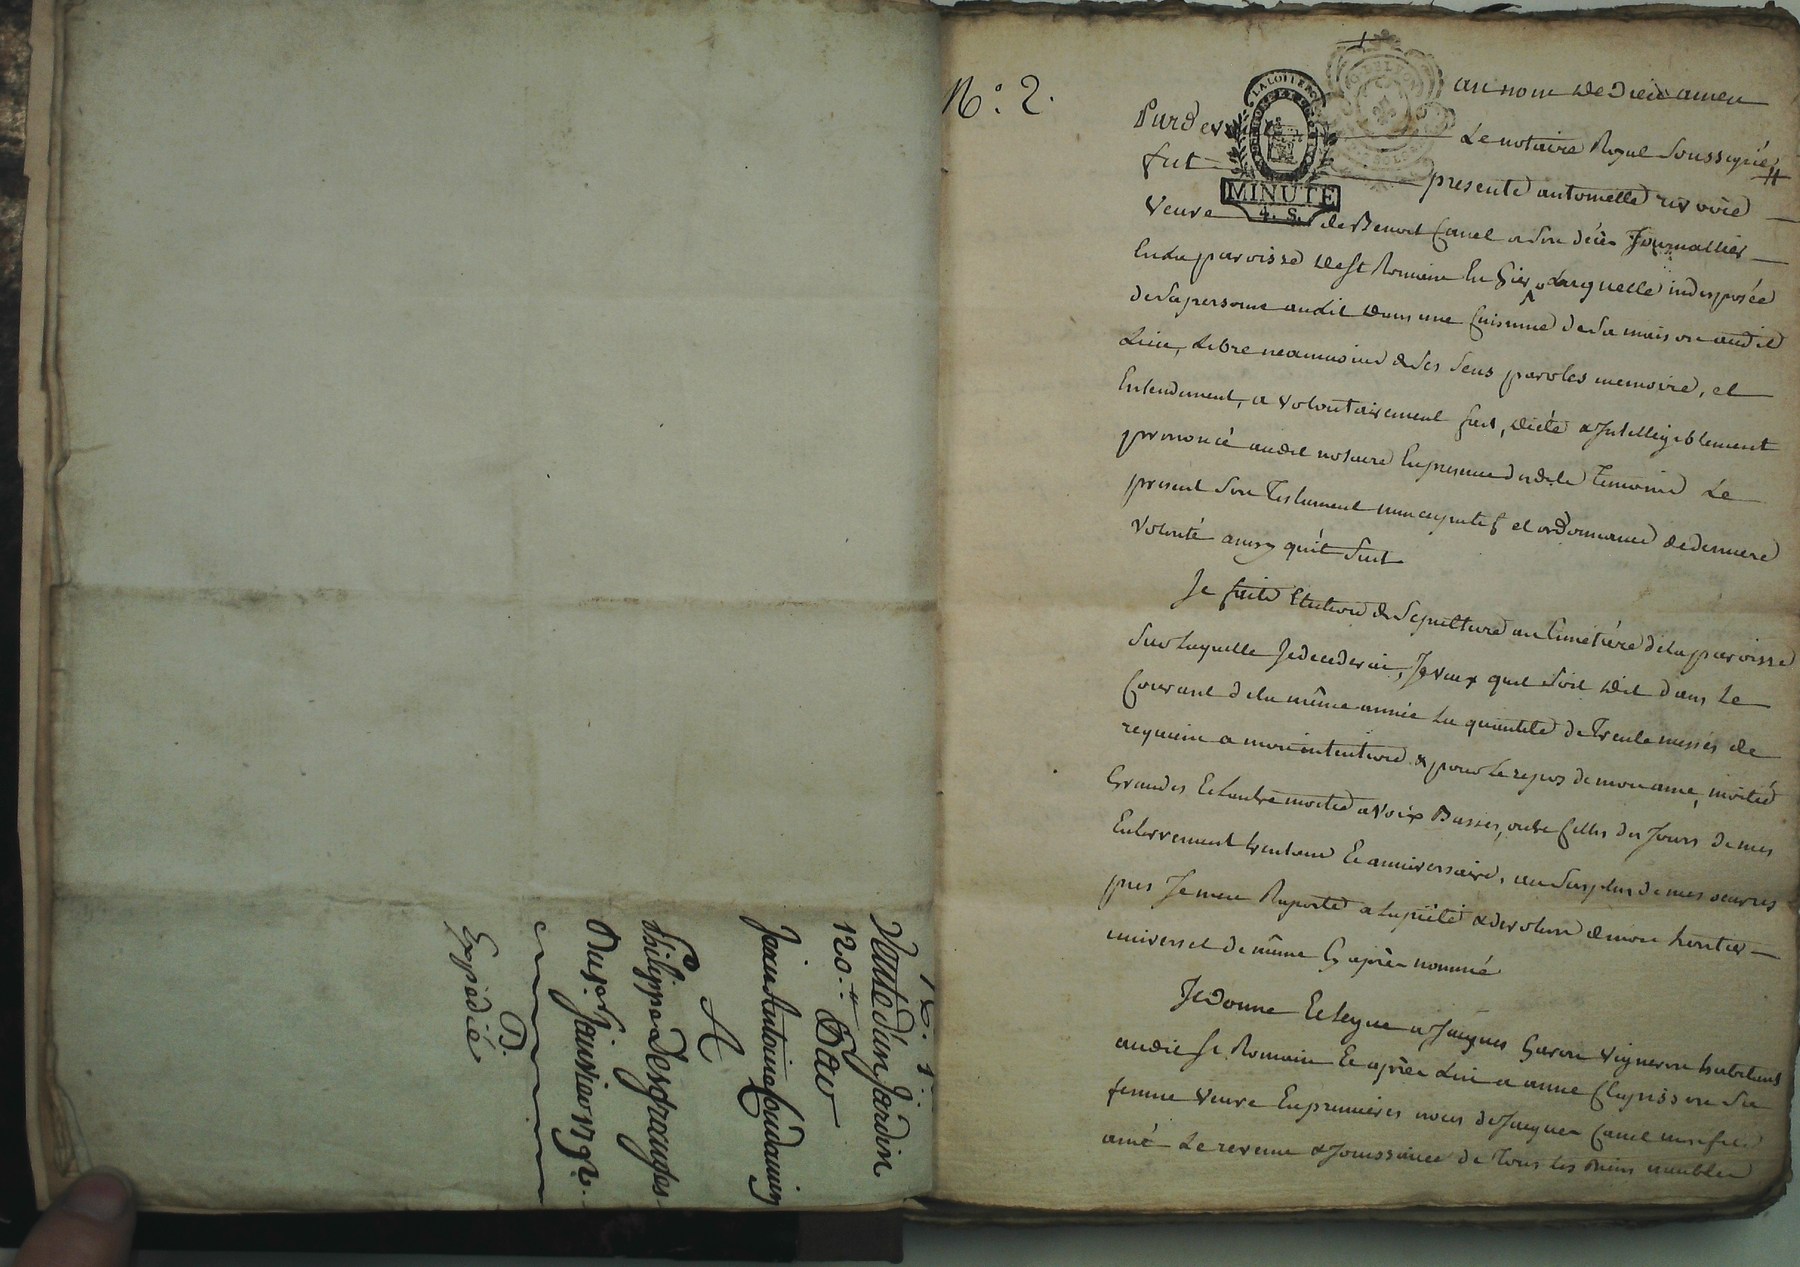 N.° 1.
Vente d'un Jardin
120.# Dav
Jean Antoine Coudamin
A
Philippe Desgranges
Du 5 Janvier 1792.
D.
Expédié
N.° 2.
au nom de Dieu amen
Pardev
Le notaire Royal Soussigné
fut
presente antoinette
MINUTE
4. S.
LA LOI LE ROI
G. DE LYON
Veuve de Benoit Canel a Son décès Journallier
En la paroisse de St Romain En Gier Laquelle indisposée
de Sa personne au Lit dans une Cuisinne de Sa maison audit
Lieu, Libre neanmoins de Ses Sens paroles memoire, et
Entendement, a volontairement fait, dicté & Intelligiblement
prononcé audit notaire En presence des dits Temoins Le
present Son Testament nuncupatif et ordonnance de derniere
volonté ainsy qu'il Suit
Je faite Election de Sepulture au Cimetière de la paroisse
Sur Laquelle Je decederai, Je veux quil Soit dit dans Le
Courant de la même année La quantité de Trente messes de
requiem a mon intention & pour Le repos de mon ame, moitié
Grandes Et Lautre moitié a voix Basses, outre Celles des Jours de mes
Enterrement trentene Et anniversaire, au Surplus de mes oeuvres
pies Je m'en Raporte a La piété & devotion de mon heritier
universel de même Cy après nommé
Je donne Et Legue a Jacques Garon vigneron habitant
audit St Romain Et après Lui a anne Clapisson Sa
femme veuve En premieres noces de Jacques Canel mon fils
ainé Le revenu & Jouissance de Tous Les Biens meubles